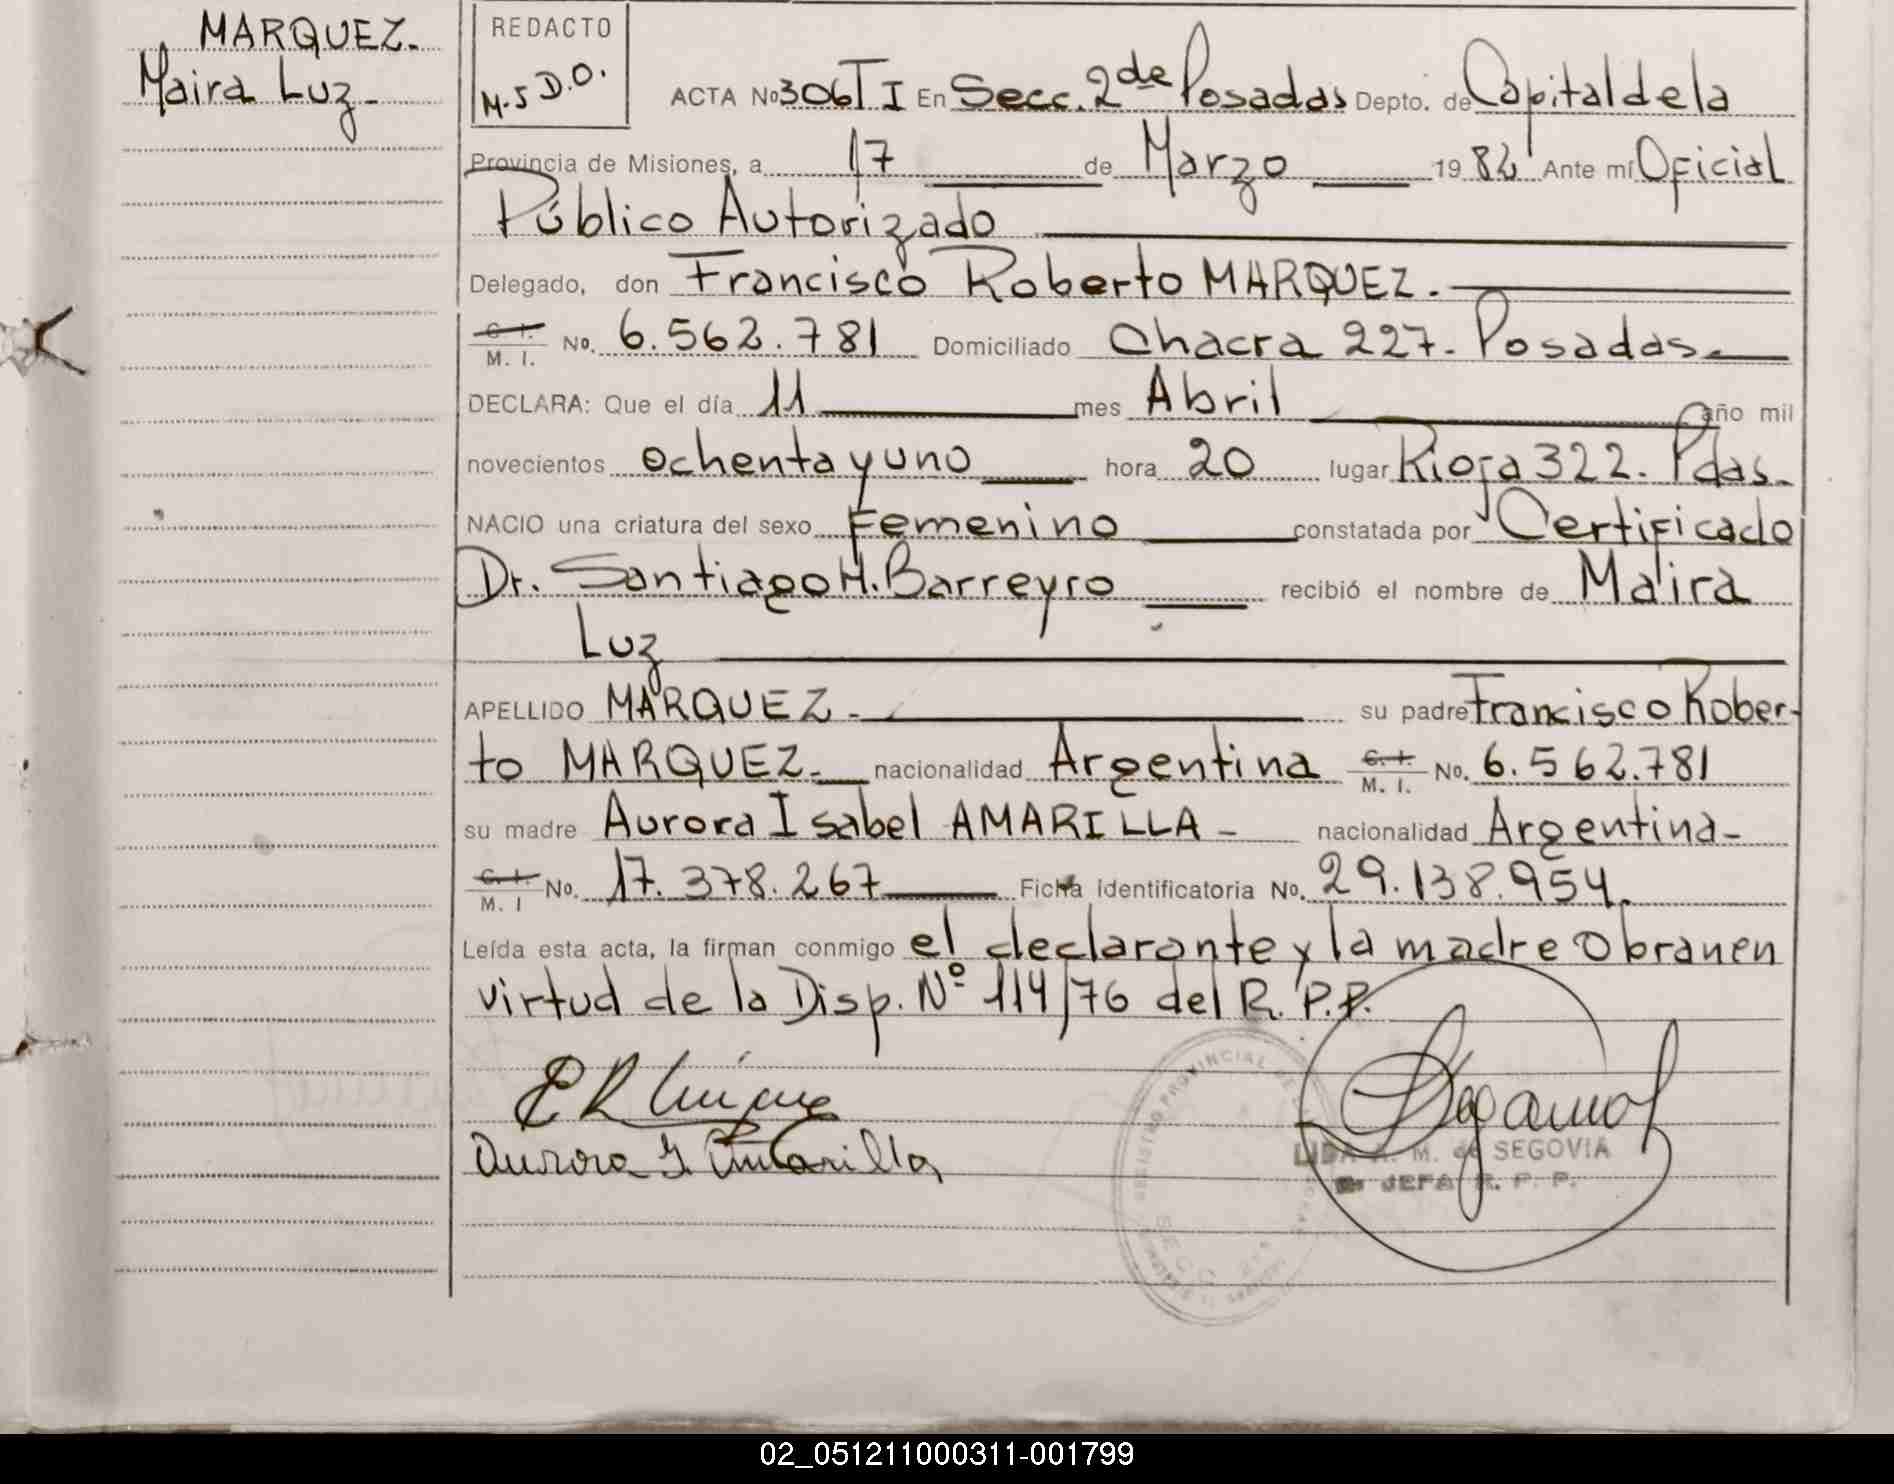 MARQUEZ.
Maira Luz.
REDACTO
M.S D.O.
ACTA No 306 T I En Secc. 2 de Posadas Depto. de Capital de la
Provincia de Misiones, a 17 de Marzo 1982 Ante mí Oficial
Público Autorizado
Delegado, don Francisco Roberto MARQUEZ.
C. I.
M. I. No. 6.562.781 Domiciliado Chacra 227. Posadas.
DECLARA: Que el día 11 mes Abril año mil
novecientos ochenta y uno hora 20 lugar Rioja 322. Pdas.
NACIO una criatura del sexo Femenino constatada por Certificado
Dr. Santiago H. Barreyro recibió el nombre de Maira
Luz
APELLIDO MARQUEZ. su padre Francisco Rober-
to MARQUEZ. nacionalidad Argentina C. I. M. I. No. 6.562.781
su madre Aurora Isabel AMARILLA - nacionalidad Argentina-
C. I. M. I No. 17.378.267 Ficha Identificatoria No. 29.138.954.
Leída esta acta, la firman conmigo el declarante y la madre obran en
virtud de la Disp. Nº 114/76 del R. P.P.
Aurora I. Amarilla
REGISTRO PROVINCIAL DE
LIDA M. de SEGOVIA
JEFA R. P. P.
02_051211000311-001799